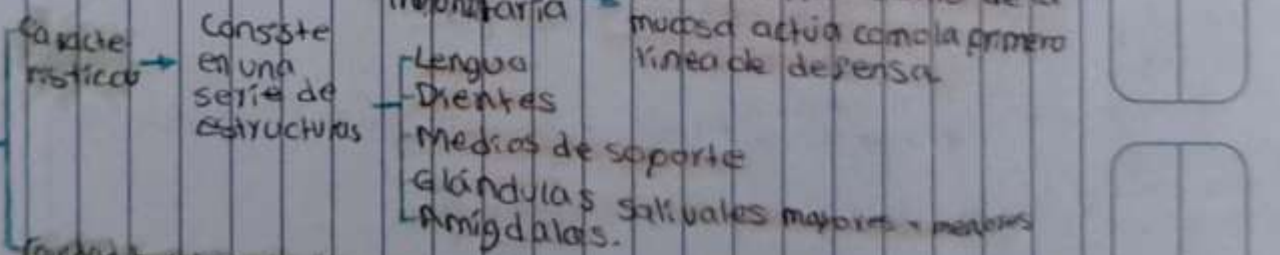 mucosa actúa como la primero
linea de defensa
Caracte
rísticas
Consiste
en una
serie de
estructuras
Lengua
Dientes
Medios de soporte
Glándulas salivales mayores y menores
Amígdalas.